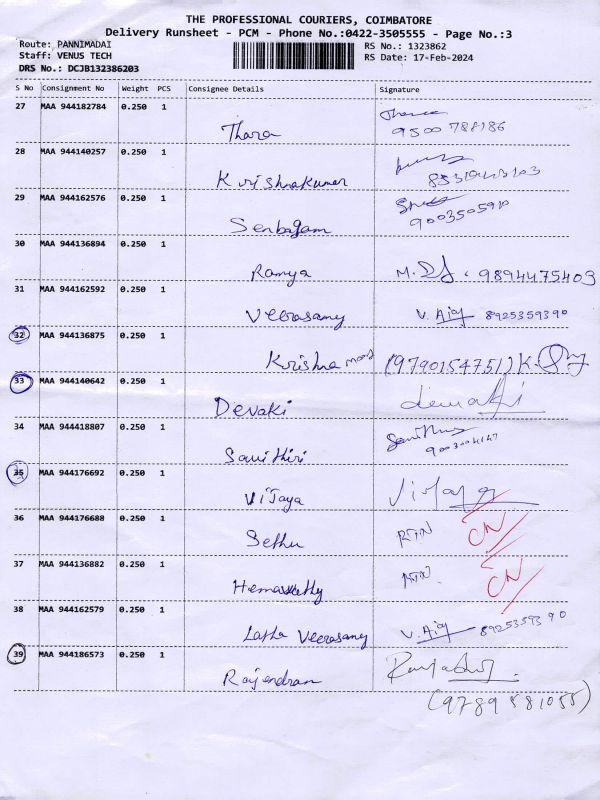 THE PROFESSIONAL COURIERS, COIMBATORE
Delivery Runsheet - PCM - Phone No.:0422-3505555 - Page No.:3
Route: PANNIMADAI
RS No.: 1323862
Staff: VENUS TECH
RS Date: 17-Feb-2024
DRS No.: DCJB132386203
S No Consignment No Weight PCS Consignee Details Signature
27 MAA 944182784 0.250 1
Thara 9500788186
28 MAA 944140257 0.250 1
Krishnakumar
29 MAA 944162576 0.250 1
Senbagam 9003505910
30 MAA 944136894 0.250 1
Ramya 9894475403
31 MAA 944162592 0.250 1
Veerasamy V. Ajay 8925359390
32 MAA 944136875 0.250 1
Krishna (9790154751) K.
33 MAA 944140642 0.250 1
Devaki
34 MAA 944418807 0.250 1
Savithiri
35 MAA 944176692 0.250 1
ViJaya
36 MAA 944176688 0.250 1
Sethu RTN CN
37 MAA 944136882 0.250 1
RTN CN
38 MAA 944162579 0.250 1
Latha Veerasamy V. Ajay 8925359390
39 MAA 944186573 0.250 1
Rajendran
(9789581055)